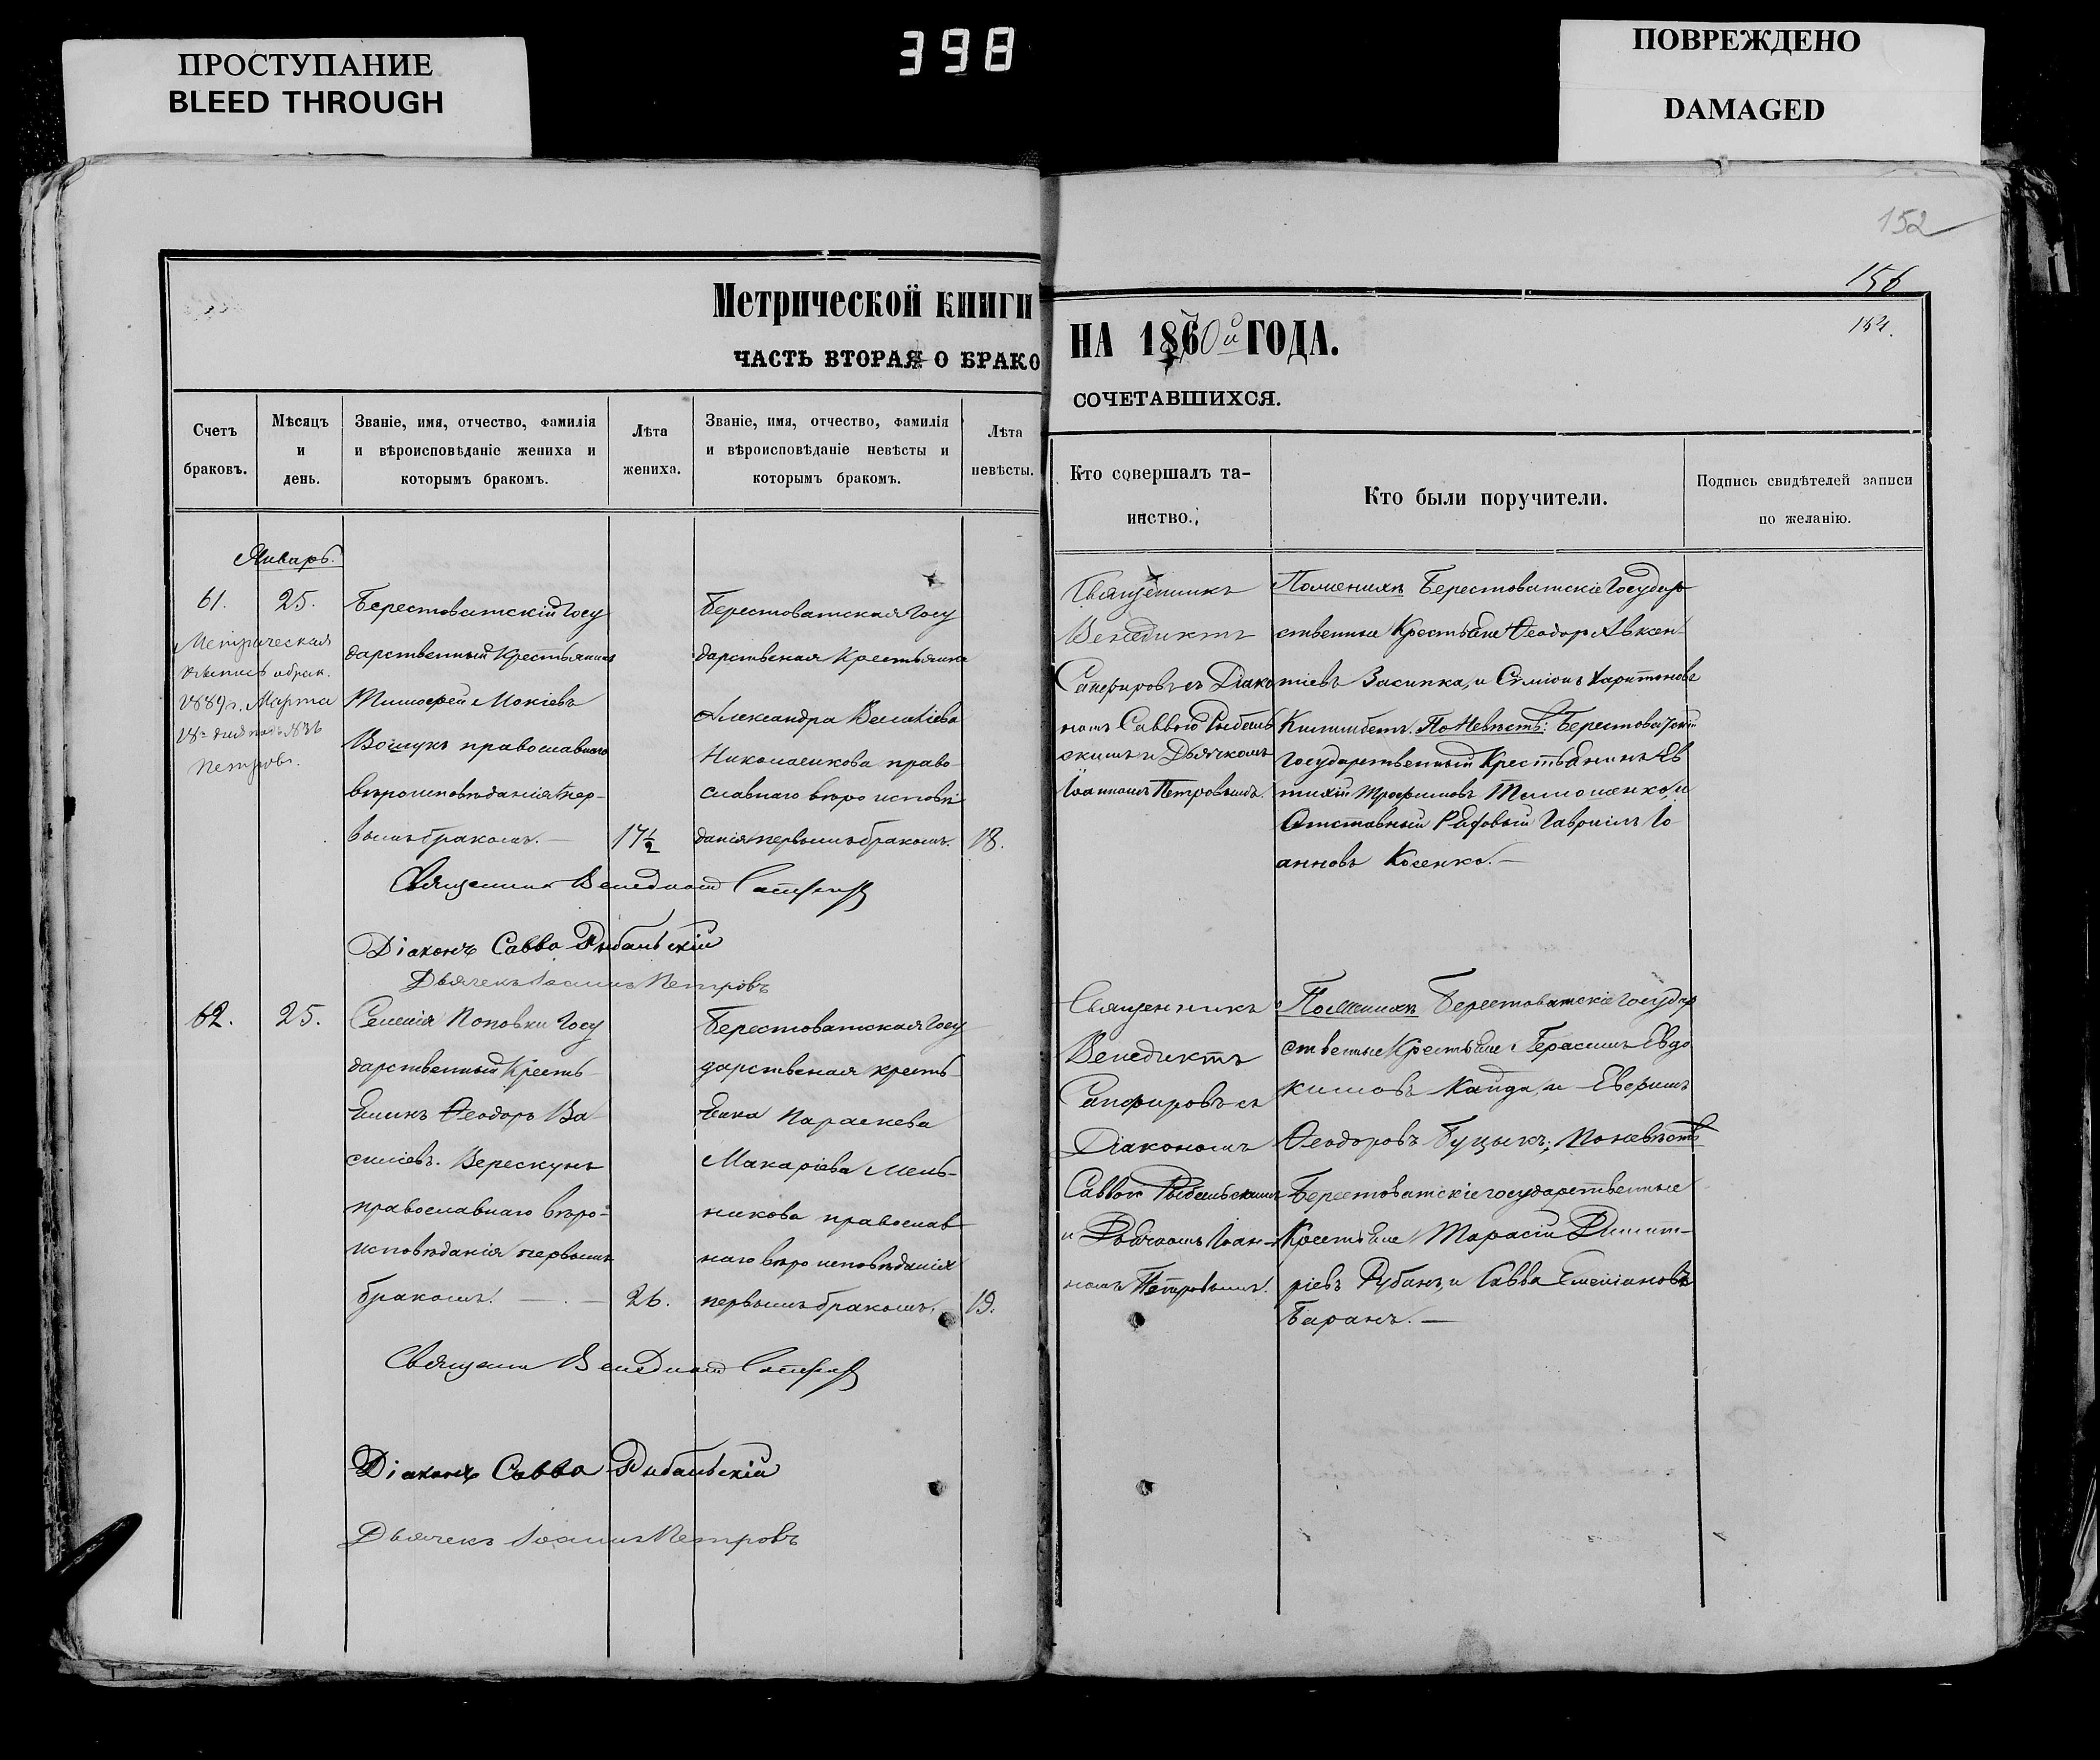 ПРОСТУПАНИЕ
BLEED THROUGH
398
ПОВРЕЖДЕНО
DAMAGED
152
156
154.
Метрической книги
ЧАСТЬ ВТОРАЯ О БРАКО
НА 1870й ГОДА.
СОЧЕТАВШИХСЯ.
Счетъ
браковъ.
Мѣсяцъ
и
день.
Званіе, имя, отчество, фамилія
и вѣроисповѣданіе жениха и
которымъ бракомъ.
Лѣта
жениха.
Званіе, имя, отчество, фамилія
и вѣроисповѣданіе невѣсты и
которымъ бракомъ.
Лѣта
невѣсты.
Кто совершалъ та-
инство.
Кто были поручители.
Подпись свидѣтелей записи
по желанію.
Январь.
61.
Метрическая
выпись о брак.
1889 г. Марта
18
Петровъ.
25.
Берестоватскій Госу
дарственный Крестьянинъ
Тимофей Мокіевъ
православнаго
вѣроисповѣданія пер-
вымъ бракомъ. —
17½
Берестоватская Госу
дарственая Крестьянка
Александра
Николаенкова право
славнаго вѣро исповѣ
данія первымъ бракомъ.
18.
Священникъ
Венедиктъ
Сапфировъ съ Діако
номъ Саввою Рыбаль
скимъ и Дьячкомъ
Іоанномъ Петровымъ.
По женихѣ Берестоватскіе Государ
ственные Крестьяне Ѳеодоръ Авксен-
тіевъ Засипка, и Сѵміонъ Харитоновъ
По Невѣстѣ: Берестоватскій
Государственный Крестьянинъ Ев
тихій Трофимовъ Тимошенко, и
Отставный Рядовый Гавріилъ Іо
анновъ Косенко. —
Священникъ Венедиктъ Сапфировъ
Діаконъ Савва Рыбальскій
Дьячекъ Іоаннъ Петровъ
62.
25.
Селенія Поповки Госу
дарственный Кресть-
янинъ Ѳеодоръ Ва
силіевъ Верескунъ
православнаго вѣро-
исповѣданія первымъ
бракомъ. —
26.
Берестоватская Госу
дарственая кресть-
янка Параскева
Макаріева Мель-
никова православ
наго вѣро исповѣданія
первымъ бракомъ.
19.
Священникъ
Венедиктъ
Сапфировъ съ
Діакономъ
Саввою Рыбальскимъ
и Дьячкомъ Іоан-
номъ Петровымъ.
По Женихѣ Берестоватскіе Государ
ственые Крестьяне Герасимъ Евдо
кимовъ Кайда, и Ефремъ
Ѳеодоровъ Буцыкъ; По невѣстѣ
Берестоватскіе государственные
Крестьяне Тарасій Димит-
ріевъ Рубанъ, и Савва Емеліановъ
Баранъ. —
Священникъ Венедиктъ Сапфировъ
Діаконъ Савва Рыбальскій
Дьячекъ Іоаннъ Петровъ